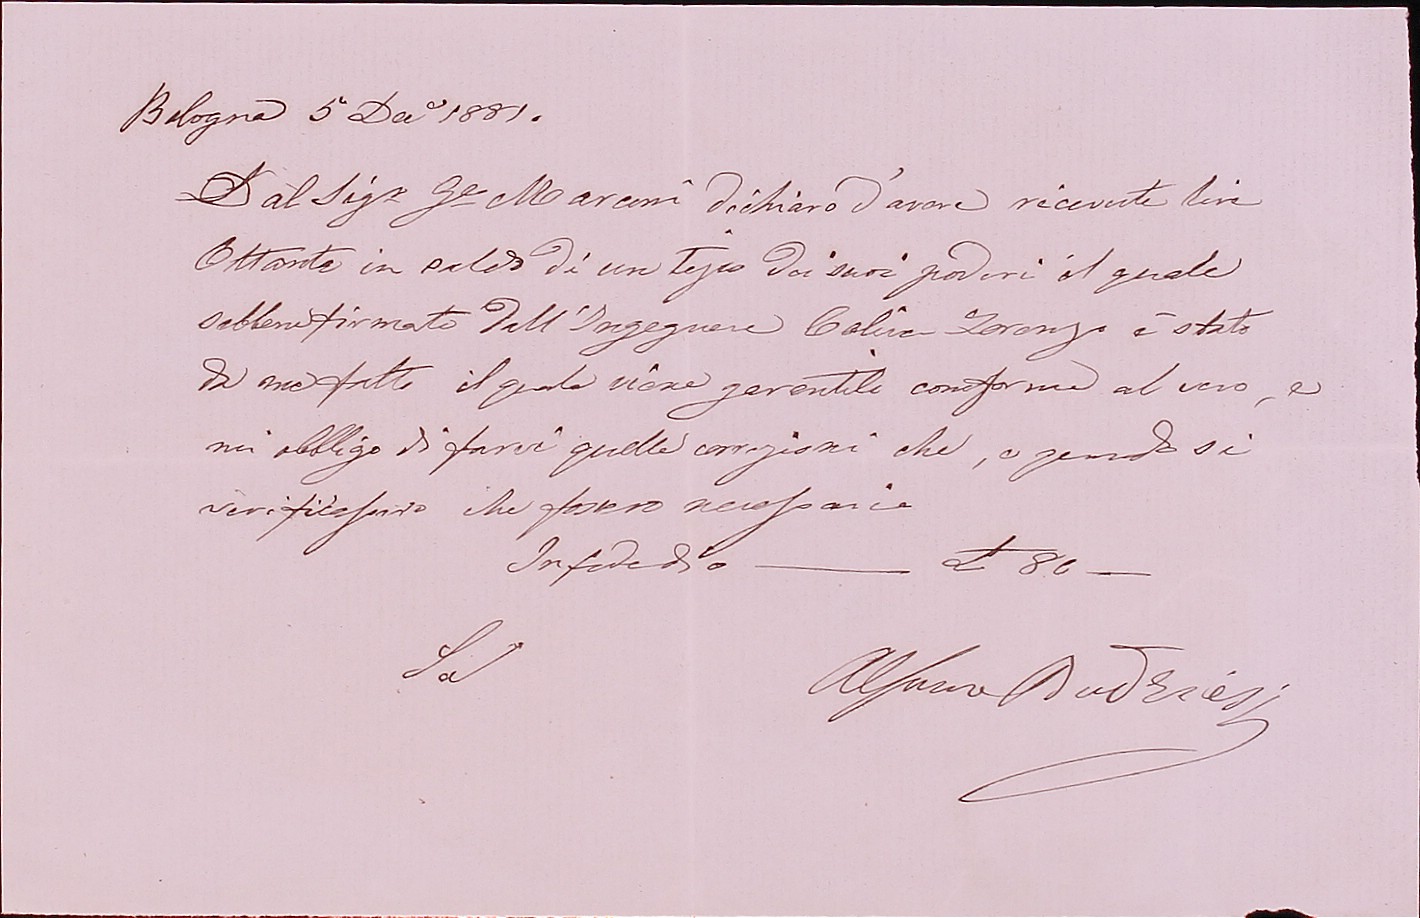 Bologna 5 Dce 1881.
Dal Sigr Ge Marconi dichiaro d'avere ricevute lire
Ottanta in saldo di un dei suoi poderi il quale
sebbene firmato dall'Ingegnere Lorenzo è stato
da me fatto il quale viene conforme al vero, e
mi obbligo di farci quelle correzioni che, e quando si
verificassero che fossero necessarie
In fede dio £ 80